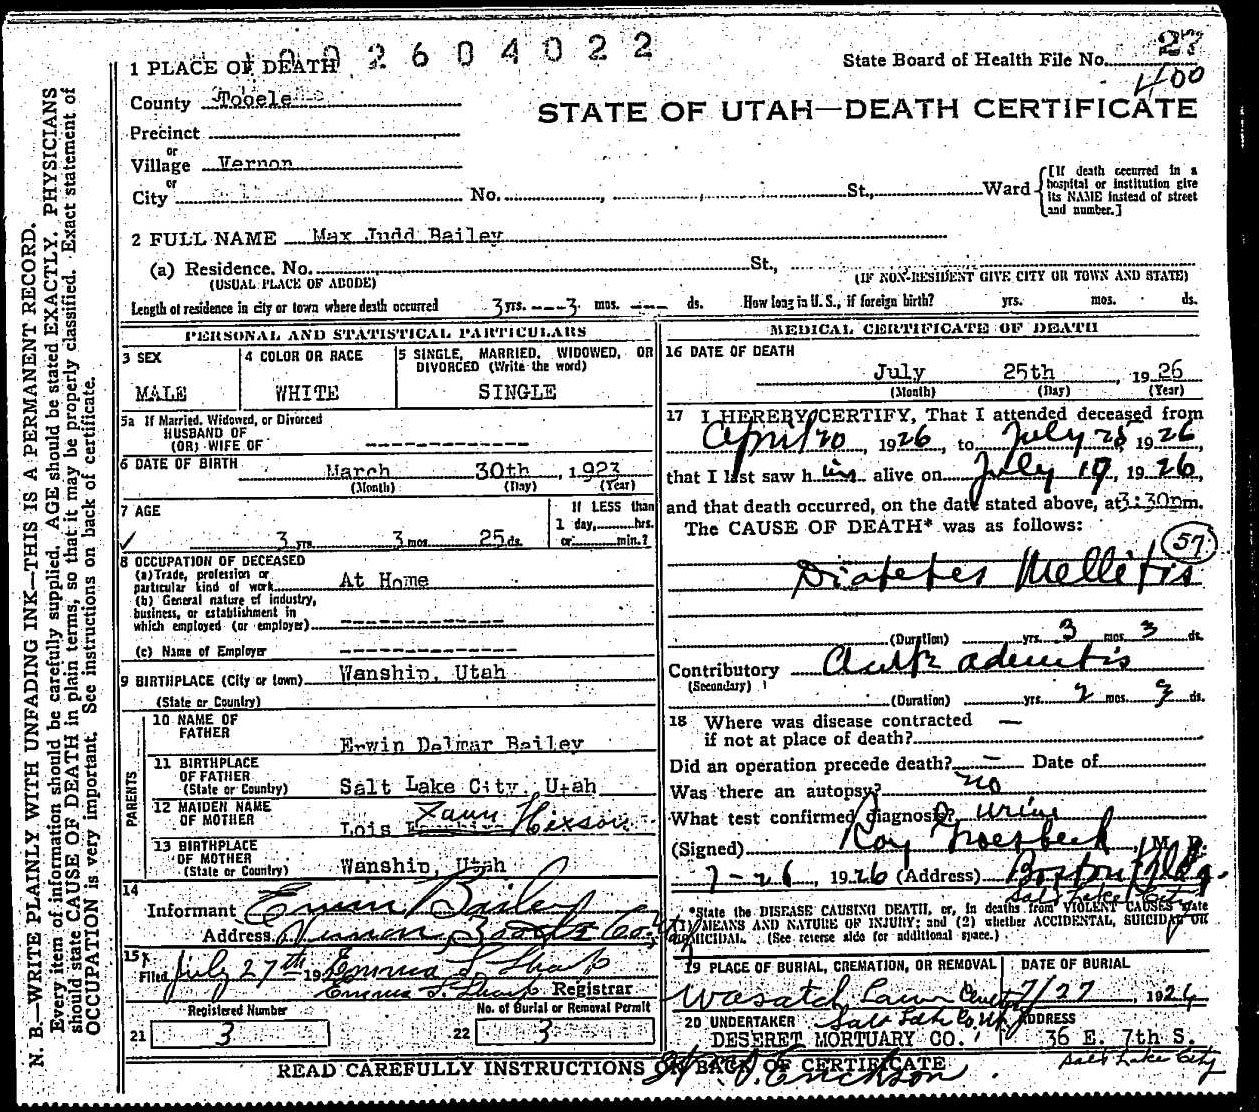 2604022
State Board of Health File No. 27
400
1 PLACE OF DEATH
County Tooele
STATE OF UTAH—DEATH CERTIFICATE
Precinct
or
Village Vernon
or
City No. St., Ward
[If death occurred in a hospital or institution give its NAME instead of street and number.]
2 FULL NAME Max Judd Bailey
(a) Residence. No. St.,
(USUAL PLACE OF ABODE) (IF NON-RESIDENT GIVE CITY OR TOWN AND STATE)
Length of residence in city or town where death occurred 3 yrs. ---3 mos. --- ds. How long in U. S., if foreign birth? yrs. mos. ds.
PERSONAL AND STATISTICAL PARTICULARS
3 SEX
MALE
4 COLOR OR RACE
WHITE
5 SINGLE, MARRIED, WIDOWED, OR DIVORCED (Write the word)
SINGLE
5a If Married, Widowed, or Divorced
HUSBAND OF
(OR) WIFE OF --------------
6 DATE OF BIRTH
March 30th, 1923
(Month) (Day) (Year)
7 AGE
3 yrs. 3 mos. 25 ds.
If LESS than
1 day, hrs.
or min.?
8 OCCUPATION OF DECEASED
(a) Trade, profession or
particular kind of work At Home
(b) General nature of industry,
business, or establishment in
which employed (or employer) --------------
(c) Name of Employer --------------
9 BIRTHPLACE (City or town) Wanship, Utah
(State or Country)
PARENTS
10 NAME OF
FATHER
Erwin Delmar Bailey
11 BIRTHPLACE
OF FATHER
(State or Country) Salt Lake City, Utah
12 MAIDEN NAME
OF MOTHER
Lois Fawn Hixson
13 BIRTHPLACE
OF MOTHER
(State or Country) Wanship, Utah
14
Informant Erwin Bailey
Address Vernon, Tooele Co.
15
Filed July 27th 19 Emma L. Sharp
Emma L. Sharp Registrar
Registered Number No. of Burial or Removal Permit
21 3 22 3
MEDICAL CERTIFICATE OF DEATH
16 DATE OF DEATH
July 25th, 1926
(Month) (Day) (Year)
17 I HEREBY CERTIFY, That I attended deceased from
April 20, 1926, to July 25, 1926,
that I last saw him alive on July 19, 1926,
and that death occurred, on the date stated above, at 3:30pm.
The CAUSE OF DEATH* was as follows:
57
Diabetes Mellitis
(Duration) yrs. 3 mos. 3 ds.
Contributory
(Secondary)
(Duration) yrs. 2 mos. 3 ds.
18 Where was disease contracted —
if not at place of death?
Did an operation precede death? — Date of
Was there an autopsy? no
What test confirmed diagnosis? urine
(Signed) Roy Groesbeck, M. D.
7-26, 1926 (Address) Boston Bldg.
Salt Lake City
*State the DISEASE CAUSING DEATH, or, in deaths from VIOLENT CAUSES state
(1) MEANS AND NATURE OF INJURY; and (2) whether ACCIDENTAL, SUICIDAL OR
HOMICIDAL. (See reverse side for additional space.)
19 PLACE OF BURIAL, CREMATION, OR REMOVAL DATE OF BURIAL
Wasatch Lawn 7/27, 1926
20 UNDERTAKER Salt Lake Co. ADDRESS
DESERET MORTUARY CO. 36 E. 7th S.
Salt Lake City
READ CAREFULLY INSTRUCTIONS ON BACK OF CERTIFICATE
Erickson
N. B.—WRITE PLAINLY WITH UNFADING INK—THIS IS A PERMANENT RECORD.
Every item of information should be carefully supplied. AGE should be stated EXACTLY. PHYSICIANS
should state CAUSE OF DEATH in plain terms, so that it may be properly classified. Exact statement of
OCCUPATION is very important. See instructions on back of certificate.